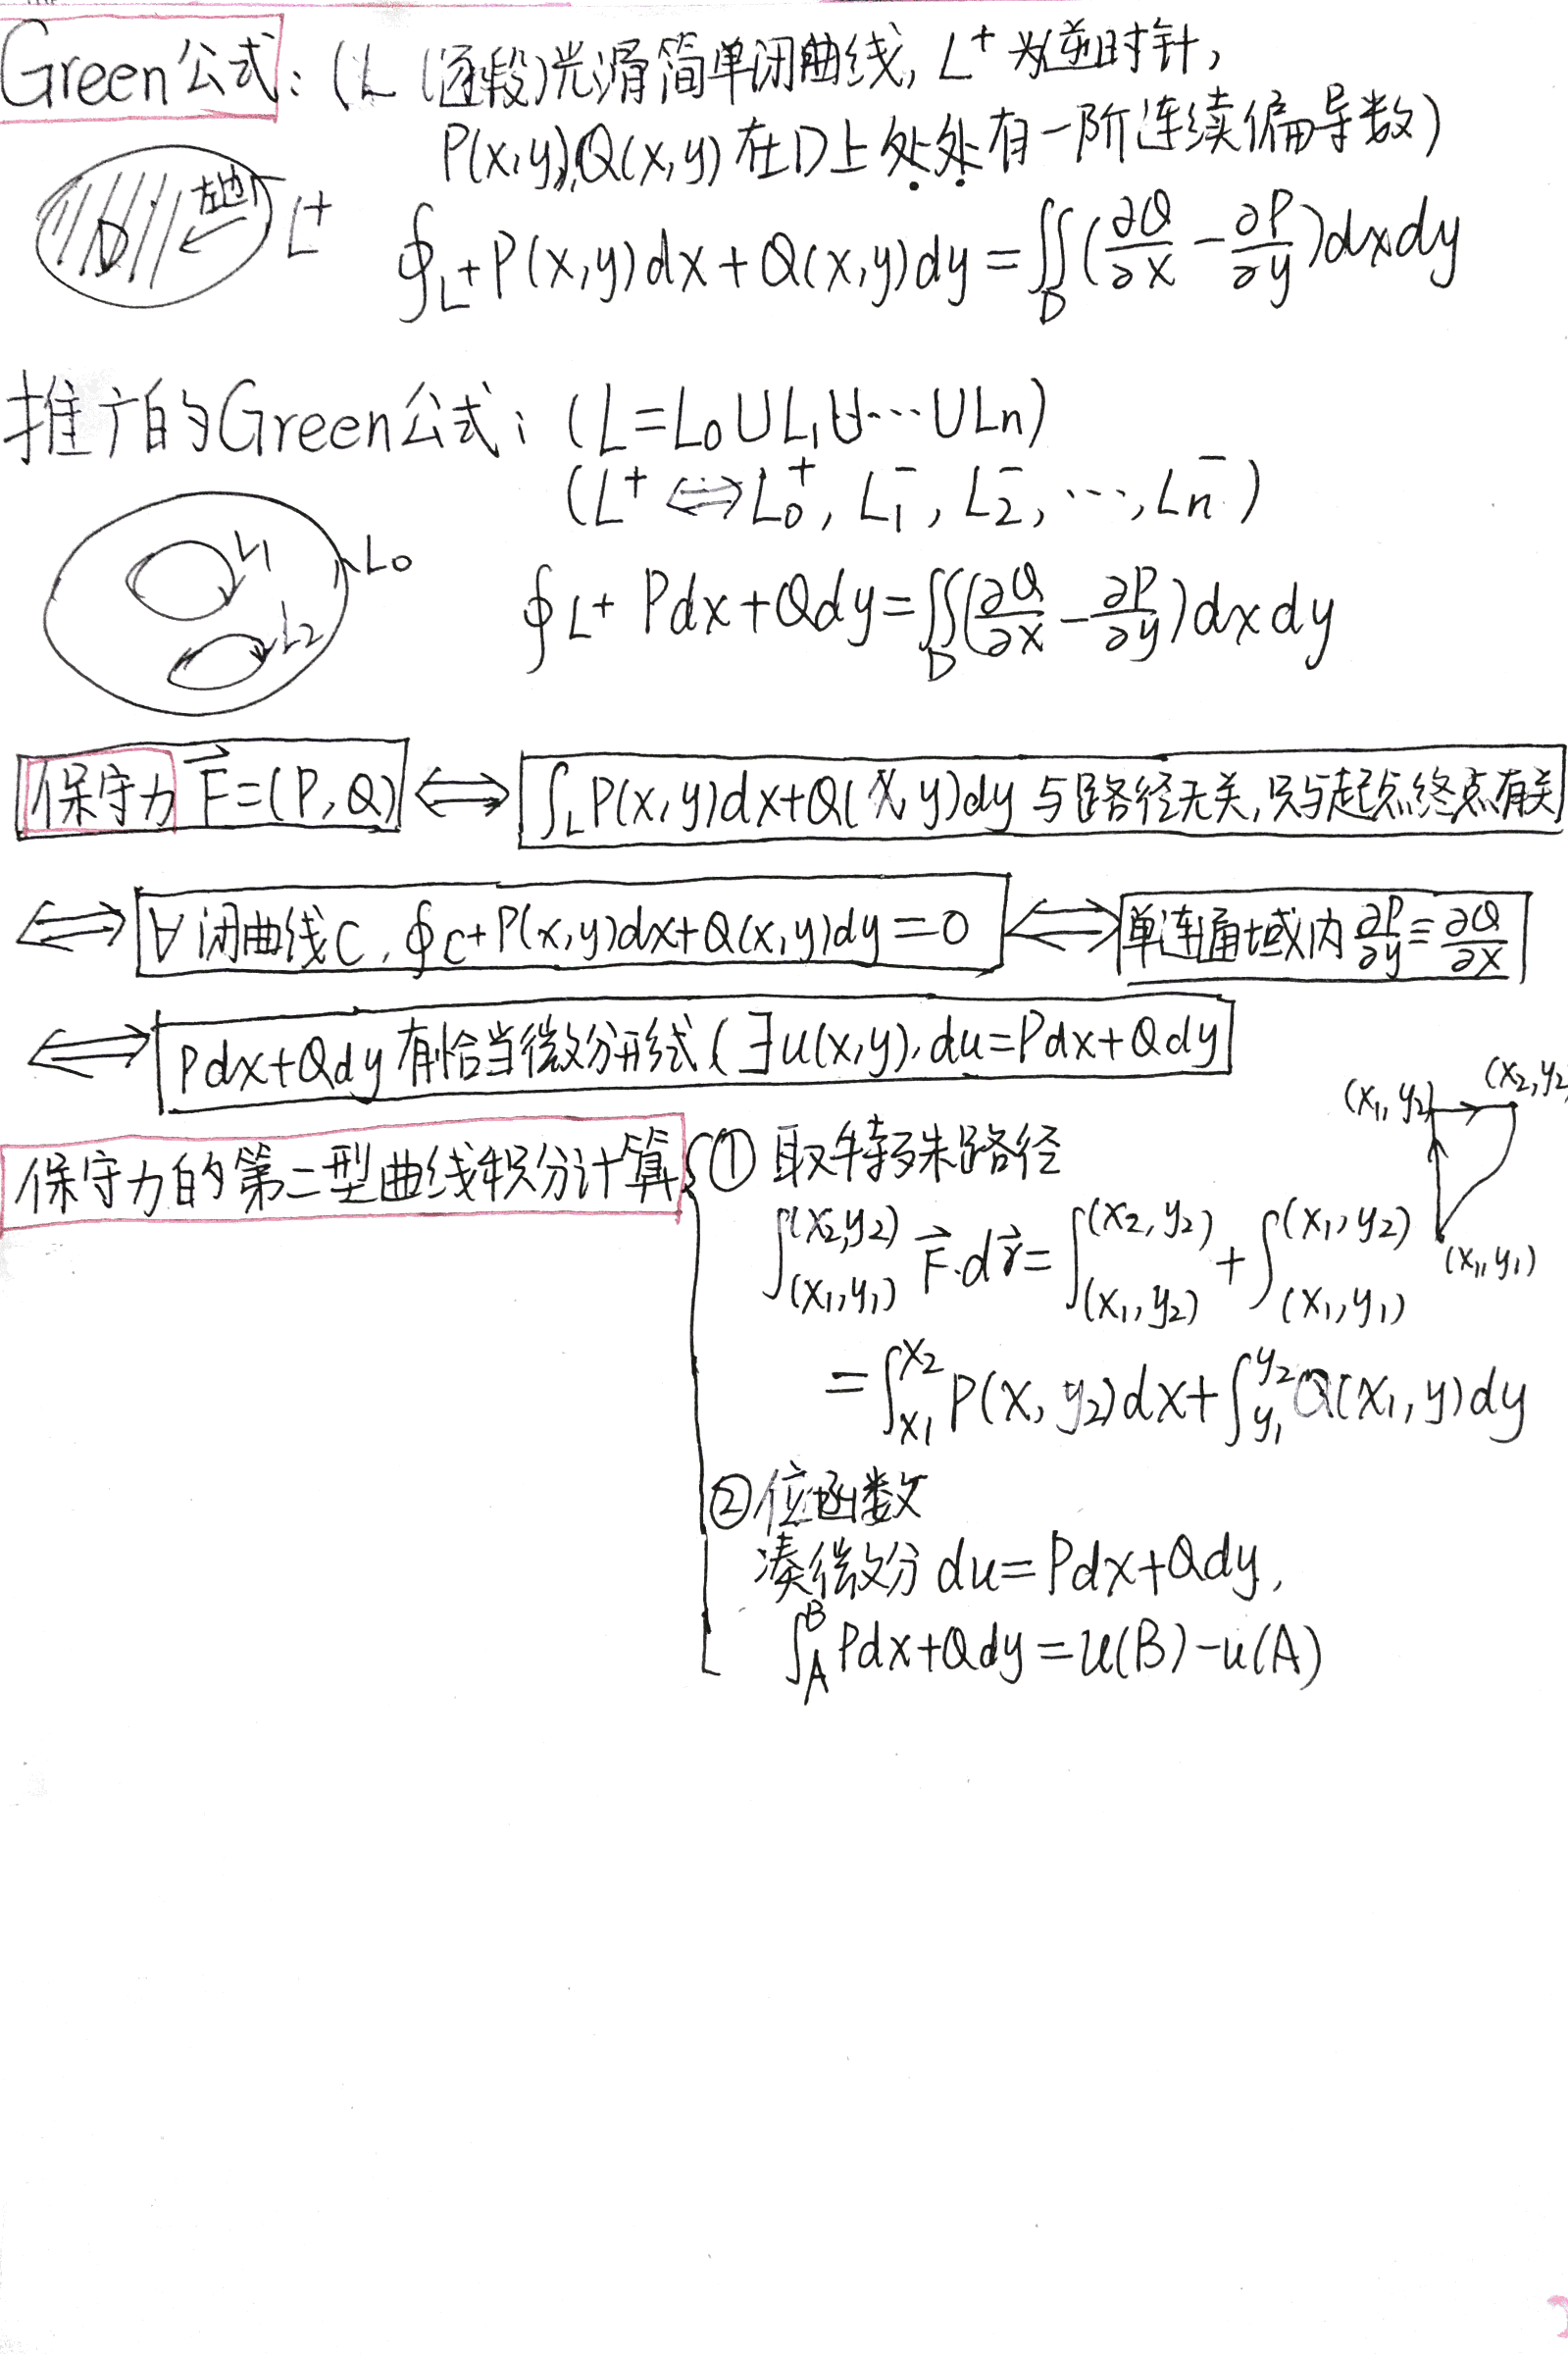 Green公式: (L (逐段)光滑简单闭曲线, L⁺为逆时针,
P(x,y),Q(x,y) 在D上处处有一阶连续偏导数)
D 左边 L⁺
∮_{L⁺} P(x,y)dx+Q(x,y)dy=∬_D(∂Q/∂x-∂P/∂y)dxdy
推广的Green公式: (L=L₀∪L₁∪…∪Ln)
(L⁺⇔L₀⁺, L₁⁻, L₂⁻, …, Ln⁻)
L₁ L₀
L₂
∮_{L⁺} Pdx+Qdy=∬_D(∂Q/∂x-∂P/∂y)dxdy
保守力 F⃗=(P,Q) ⇔ ∫_L P(x,y)dx+Q(x,y)dy 与路径无关,只与起点终点有关
⇔ ∀闭曲线C, ∮_{C⁺} P(x,y)dx+Q(x,y)dy=0 ⇔ 单连通域内 ∂P/∂y≡∂Q/∂x
⇔ Pdx+Qdy 有恰当微分形式 (∃u(x,y), du=Pdx+Qdy
(x₁,y₂) (x₂,y₂)
(x₁,y₁)
保守力的第二型曲线积分计算
① 取特殊路径
∫_{(x₁,y₁)}^{(x₂,y₂)} F⃗·dr⃗=∫_{(x₁,y₂)}^{(x₂,y₂)}+∫_{(x₁,y₁)}^{(x₁,y₂)}
=∫_{x₁}^{x₂} P(x,y₂)dx+∫_{y₁}^{y₂} Q(x₁,y)dy
② 位函数
凑微分 du=Pdx+Qdy,
∫_A^B Pdx+Qdy=u(B)-u(A)